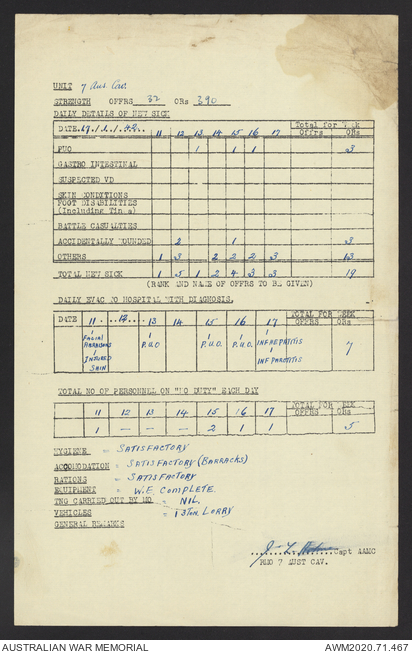 UNIT 7 Aus. Cav.
STRENGTH OFFRS 32 ORs 390
DAILY DETAILS OF NEW SICK
DATE 11 12 13 14 15 16 17 Total for Week
Offrs ORs
PUO 1 1 1 3
GASTRO INTESTINAL
SUSPECTED VD
SKIN CONDITIONS
FOOT DISABILITIES
(Including Tinea)
BATTLE CASUALTIES
ACCIDENTALLY WOUNDED 2 1 3
OTHERS 1 3 2 2 2 3 13
TOTAL NEW SICK 1 5 1 2 4 3 3 19
(RANK AND NAME OF OFFRS TO BE GIVEN)
DAILY EVAC TO HOSPITAL WITH DIAGNOSIS.
DATE 11 12 13 14 15 16 17 TOTAL FOR WEEK
OFFRS ORs
1 FACIAL ABRASIONS
1 INJURED SHIN
1 P.U.O
1 P.U.O.
1 P.U.O.
1 INF HEPATITIS
1 INF PAROTITIS
7
TOTAL NO OF PERSONNEL ON "NO DUTY" EACH DAY
11 12 13 14 15 16 17 TOTAL FOR WEEK
OFFRS ORs
1 — — — 2 1 1 5
HYGIENE = SATISFACTORY
ACCOMODATION = SATISFACTORY (BARRACKS)
RATIONS = SATISFACTORY
EQUIPMENT = W.E. COMPLETE.
TNG CARRIED OUT BY MO = NIL.
VEHICLES = 1 3 TON. LORRY
GENERAL REMARKS
Capt AAMC
RMO 7 AUST CAV.
AUSTRALIAN WAR MEMORIAL AWM2020.71.467